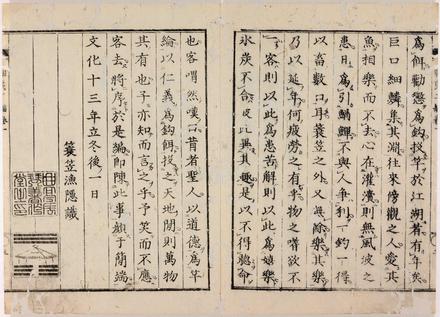 爲餌勸懲爲鈎投竿於江湖若有年矣
巨口細鱗集其淵往來傍觀之人愛其
魚相樂而不去心在灌瀆則無風波之
患日爲引不與人爭利一釣一得
以畜數口耳蓑笠之外又無除樂其樂
乃以延年何疲勞之有乎物之嗜欲不
一客則以此爲患苦觧則以此爲娯樂
氷炭不合彼此無其趣是以不得聽命
也客喟然嘆曰昔者聖人以道德爲竿
綸以仁義爲鈎餌投之天地閒則萬物
其有也子亦知而言之乎予笑而不應
客去將序於是編即陳此事題于簡端
文化十三年立冬後一日
蓑笠漁隱識